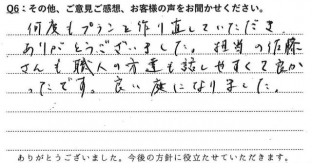 Q6：その他、ご意見ご感想、お客様の声をお聞かせください。
何度もプランを作り直していただき
ありがとうございました。担当の佐藤
さんも職人の方達も話しやすくて良か
ったです。良い庭になりました。
ありがとうございました。今後の方針に役立たせていただきます。